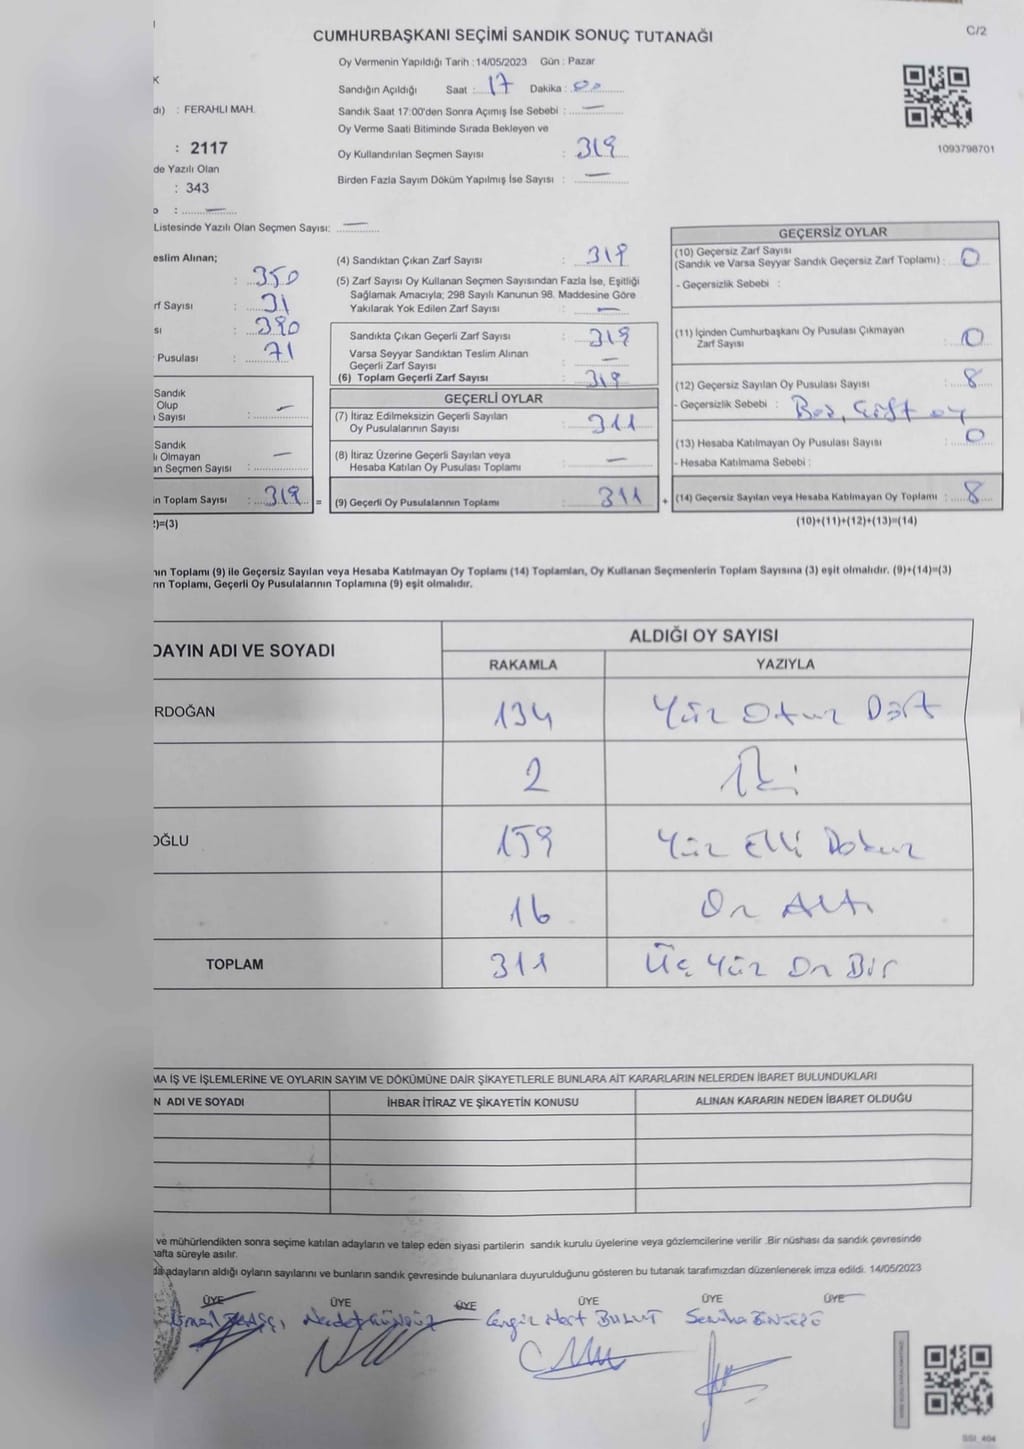 CUMHURBAŞKANI SEÇİMİ SANDIK SONUÇ TUTANAĞI
C/2
Oy Vermenin Yapıldığı Tarih : 14/05/2023 Gün : Pazar
Sandığın Açıldığı Saat : 17 Dakika : 00
Sandık Saat 17:00'den Sonra Açımış İse Sebebi : —
Oy Verme Saati Bitiminde Sırada Bekleyen ve
Oy Kullandırılan Seçmen Sayısı : 319
Birden Fazla Sayım Döküm Yapılmış İse Sayısı : —
1093798701
K
dı) : FERAHLI MAH.
: 2117
de Yazılı Olan
: 343
o : —
Listesinde Yazılı Olan Seçmen Sayısı: —
eslim Alınan;
: 350
rf Sayısı : 31
sı : 390
Pusulası : 71
Sandık
Olup
ı Sayısı : —
Sandık
lı Olmayan
an Seçmen Sayısı : —
n Toplam Sayısı : 319 =
2)=(3)
(4) Sandıktan Çıkan Zarf Sayısı : 319
(5) Zarf Sayısı Oy Kullanan Seçmen Sayısından Fazla İse, Eşitliği
Sağlamak Amacıyla; 298 Sayılı Kanunun 98. Maddesine Göre
Yakılarak Yok Edilen Zarf Sayısı : —
Sandıkta Çıkan Geçerli Zarf Sayısı : 319
Varsa Seyyar Sandıktan Teslim Alınan
Geçerli Zarf Sayısı : —
(6) Toplam Geçerli Zarf Sayısı : 319
GEÇERLİ OYLAR
(7) İtiraz Edilmeksizin Geçerli Sayılan
Oy Pusulalarının Sayısı : 311
(8) İtiraz Üzerine Geçerli Sayılan veya
Hesaba Katılan Oy Pusulası Toplamı : —
(9) Geçerli Oy Pusulalarının Toplamı : 311 +
GEÇERSİZ OYLAR
(10) Geçersiz Zarf Sayısı
(Sandık ve Varsa Seyyar Sandık Geçersiz Zarf Toplamı) : 0
- Geçersizlik Sebebi :
(11) İçinden Cumhurbaşkanı Oy Pusulası Çıkmayan
Zarf Sayısı : 0
(12) Geçersiz Sayılan Oy Pusulası Sayısı : 8
- Geçersizlik Sebebi : Boş, Çift oy
(13) Hesaba Katılmayan Oy Pusulası Sayısı : 0
- Hesaba Katılmama Sebebi :
(14) Geçersiz Sayılan veya Hesaba Katılmayan Oy Toplamı : 8
(10)+(11)+(12)+(13)=(14)
nın Toplamı (9) ile Geçersiz Sayılan veya Hesaba Katılmayan Oy Toplamı (14) Toplamları, Oy Kullanan Seçmenlerin Toplam Sayısına (3) eşit olmalıdır. (9)+(14)=(3)
rın Toplamı, Geçerli Oy Pusulalarının Toplamına (9) eşit olmalıdır.
DAYIN ADI VE SOYADI
ALDIĞI OY SAYISI
RAKAMLA YAZIYLA
RDOĞAN 134 Yüz Otuz Dört
2 İki
OĞLU 159 Yüz Elli Dokuz
16 On Altı
TOPLAM 311 Üç Yüz On Bir
MA İŞ VE İŞLEMLERİNE VE OYLARIN SAYIM VE DÖKÜMÜNE DAİR ŞİKAYETLERLE BUNLARA AİT KARARLARIN NELERDEN İBARET BULUNDUKLARI
N ADI VE SOYADI İHBAR İTİRAZ VE ŞİKAYETİN KONUSU ALINAN KARARIN NEDEN İBARET OLDUĞU
ve mühürlendikten sonra seçime katılan adayların ve talep eden siyasi partilerin sandık kurulu üyelerine veya gözlemcilerine verilir .Bir nüshası da sandık çevresinde
hafta süreyle asılır.
da adayların aldığı oyların sayılarını ve bunların sandık çevresinde bulunanlara duyurulduğunu gösteren bu tutanak tarafımızdan düzenlenerek imza edildi. 14/05/2023
ÜYE ÜYE ÜYE ÜYE ÜYE ÜYE
Cengiz Mert BULUT Semiha
SSI_404